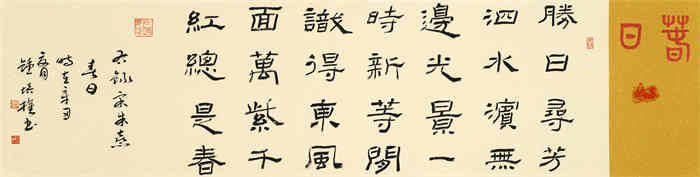 春日
勝日尋芳
泗水濱無
邊光景一
時新等閒
識得東風
面萬紫千
紅總是春
右錄宋朱熹
春日
時在辛丑